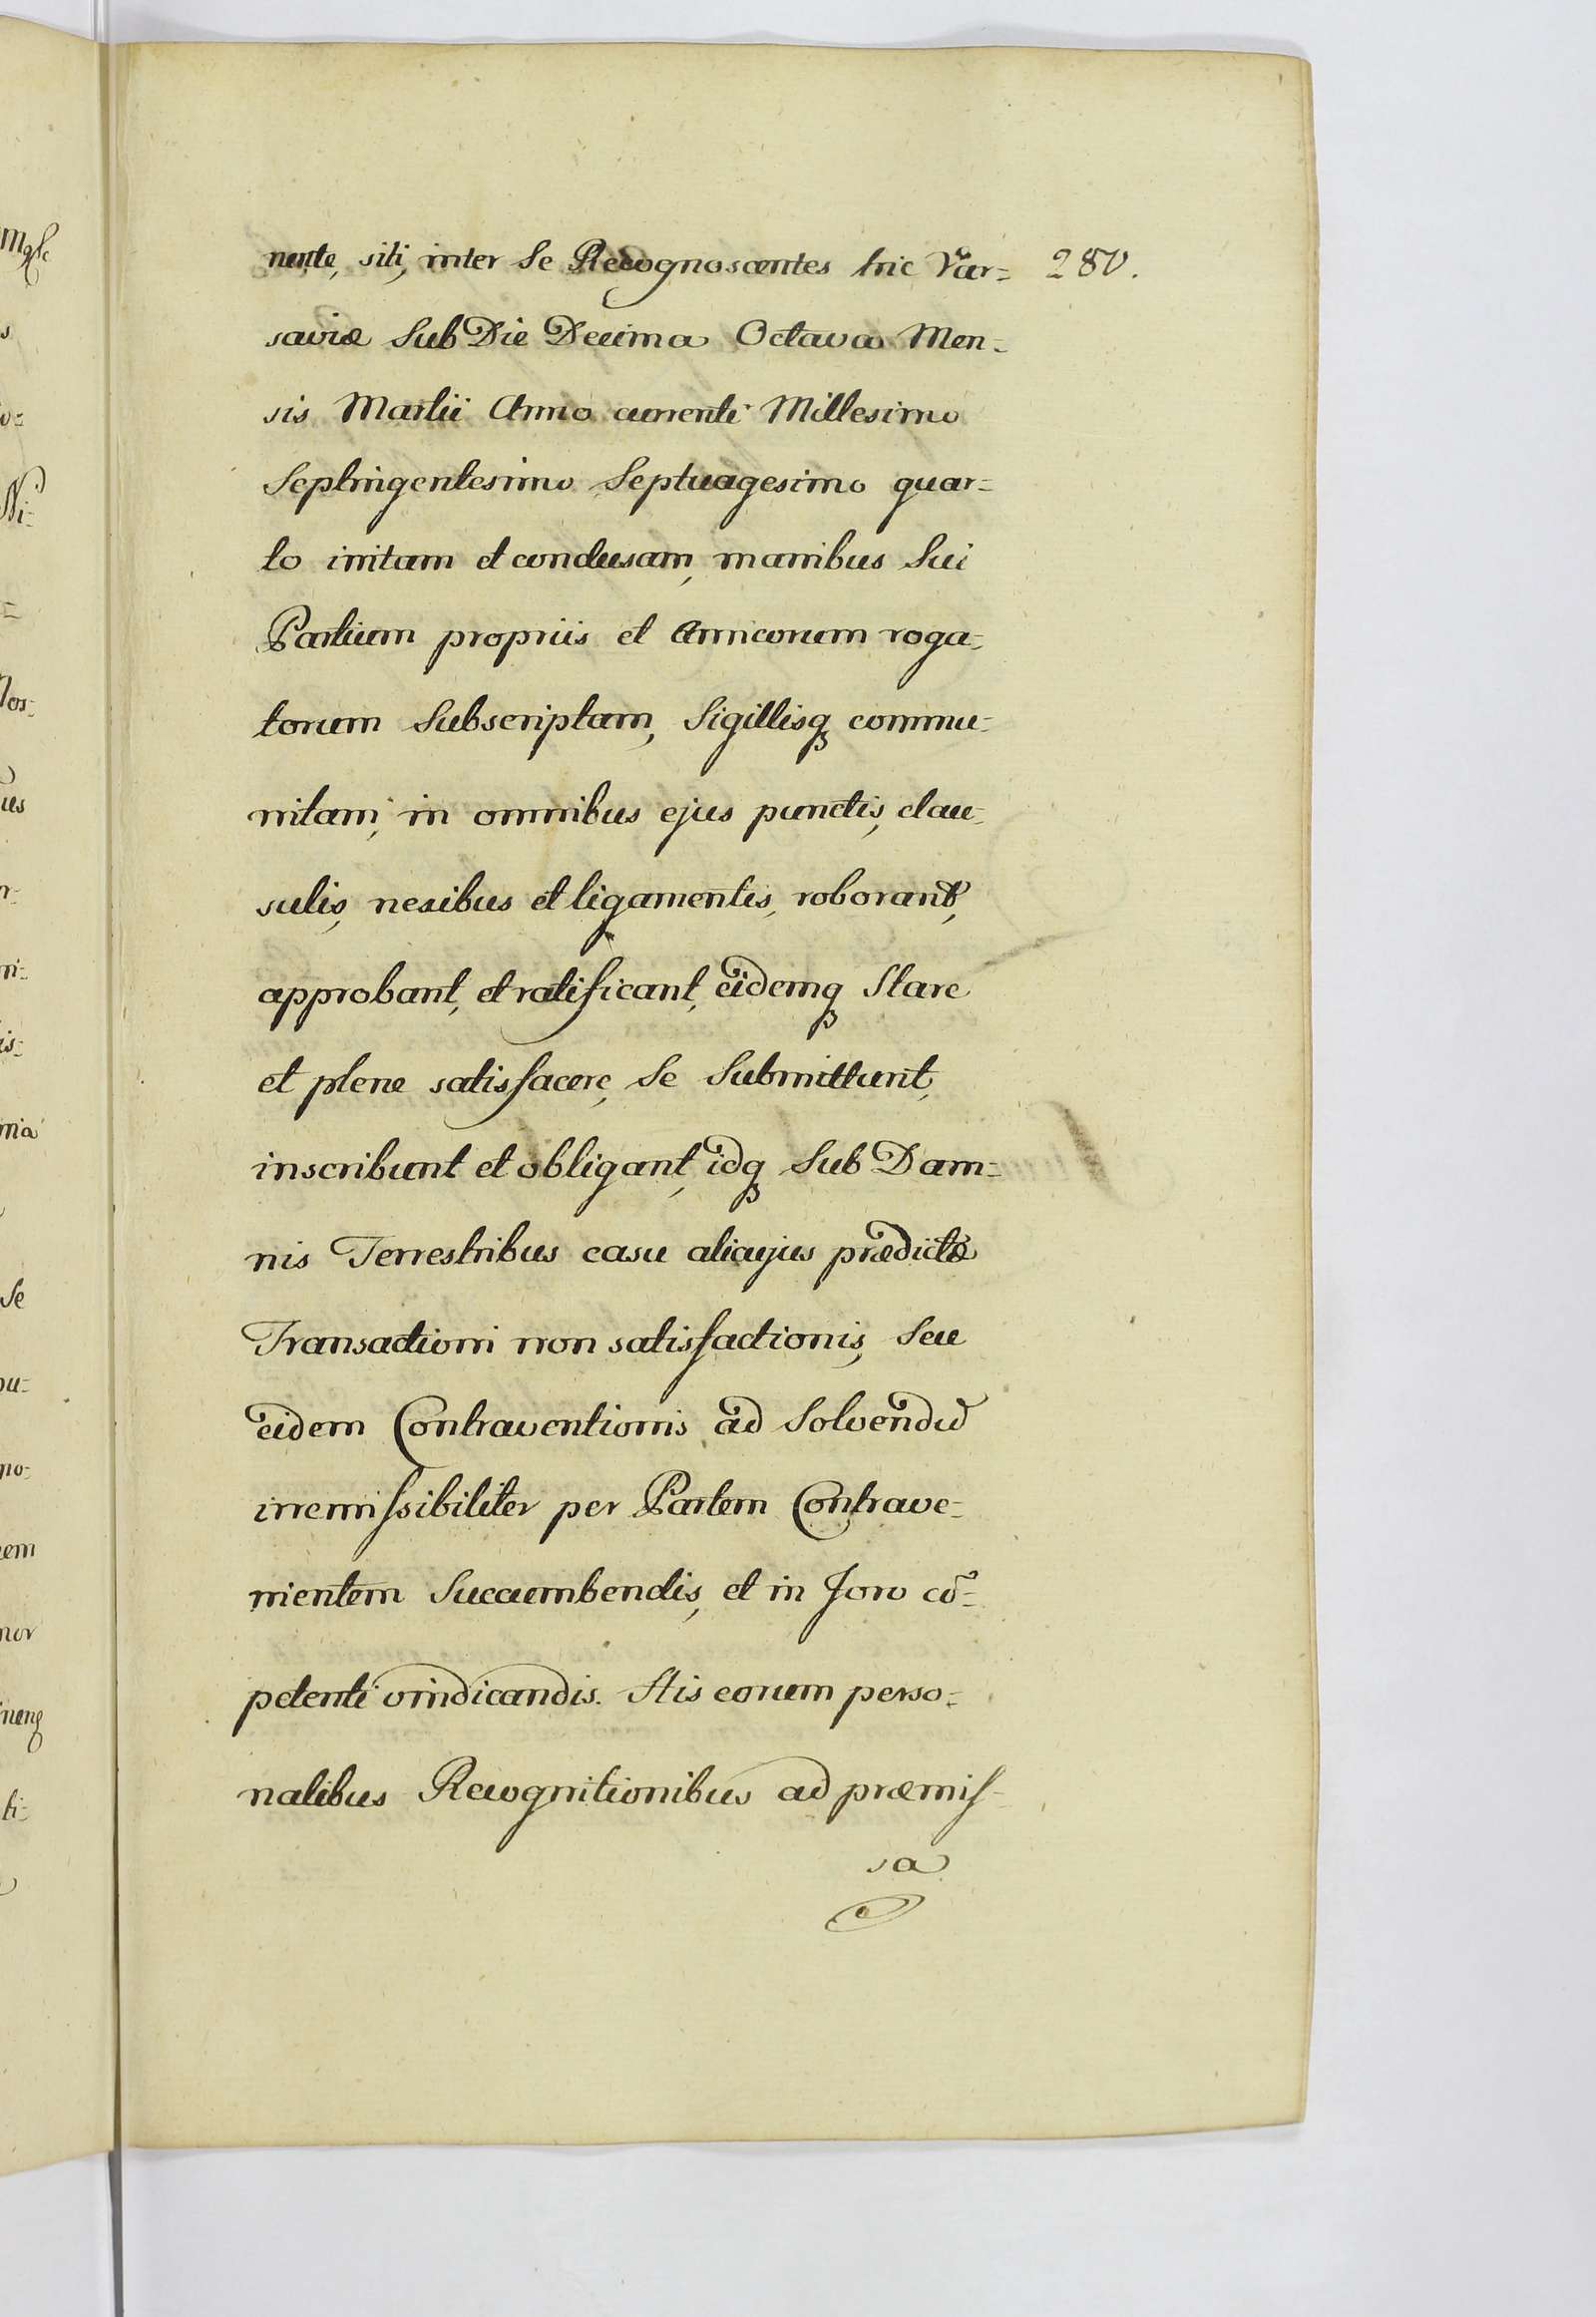 nente, siti, inter Se Recognoscentes hic Var= 280.
saviæ Sub Die Decima Octava Men=
sis Martii Anno currenti Millesimo
Septingentesimo Septuagesimo quar=
to initam et conclusam, manibus Sui
Partium propriis et Amicorum roga=
torum Subscriptam, Sigillisq̃ commu=
nitam, in omnibus ejus punctis, clau=
sulis, nexibus et ligamentis, roborant,
approbant, et ratificant, eidemq̃ Stare
et plene satisfacere, Se Submittunt,
inscribunt et obligant, idq̃ Sub Dam=
nis Terrestribus casu alicujus prædictæ
Transactioni non satisfactionis, Seu
eidem Contraventionis ad Solvendũ
irremissibiliter per Partem Contrave=
nientem Succumbendis, et in Foro cõ=
petenti vindicandis. Stis eorum perso=
nalibus Recognitionibus ad præmis=
sa